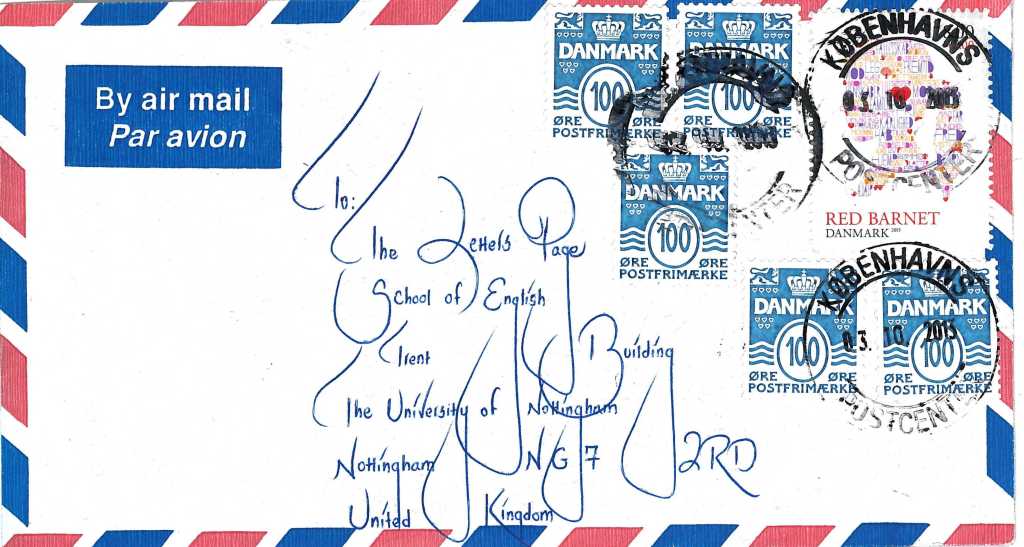 By air mail
Par avion
DANMARK
100
ØRE ØRE
POSTFRIMÆRKE
DANMARK
100
ØRE ØRE
POSTFRIMÆRKE
KØBENHAVNS
03. 10. 2013
POSTCENTER
RED BARNET
DANMARK 2013
DANMARK
100
ØRE ØRE
POSTFRIMÆRKE
KØBENHAVNS
03. 10. 2013
POSTCENTER
DANMARK
100
ØRE ØRE
POSTFRIMÆRKE
DANMARK
100
ØRE ØRE
POSTFRIMÆRKE
To:
The Letters Page
School of English
Trent Building
The University of Nottingham
Nottingham NG7 2RD
United Kingdom